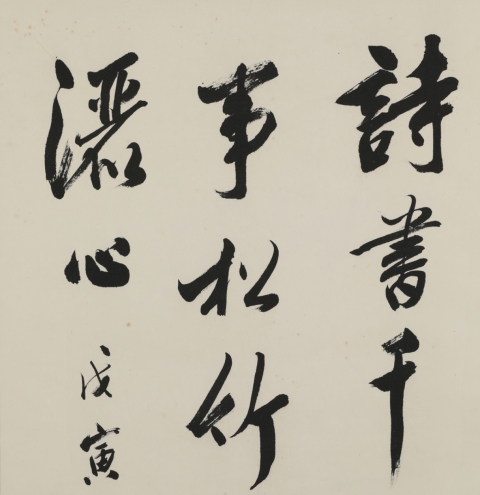 詩書千
事松竹
灑心
戊寅